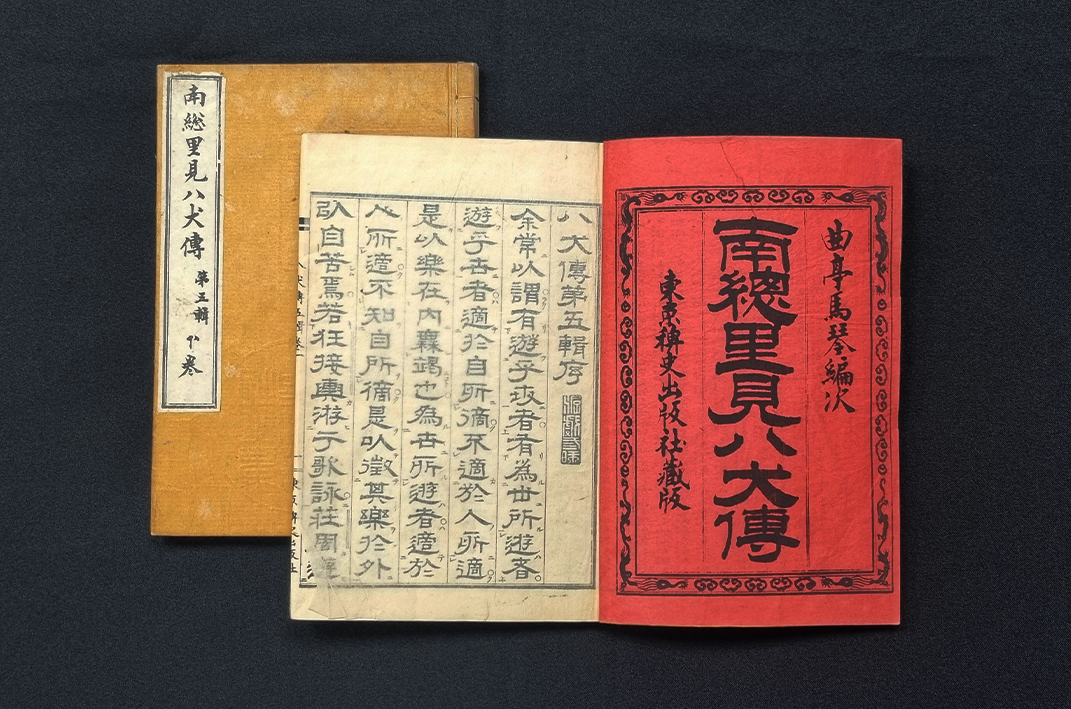 南総里見八犬傳 第五輯 下卷
曲亭馬琴編次
南總里見八犬傳
東京稗史出版社藏版
八犬傳第五輯序
余常以謂有遊乎世者有為世所遊者
遊乎世者適於自所適不適於人所適
是以樂在内囊竭也為世所遊者適於
人所適不知自所適是以徵其樂於外
以自苦焉若狂接輿游于歌詠荘周